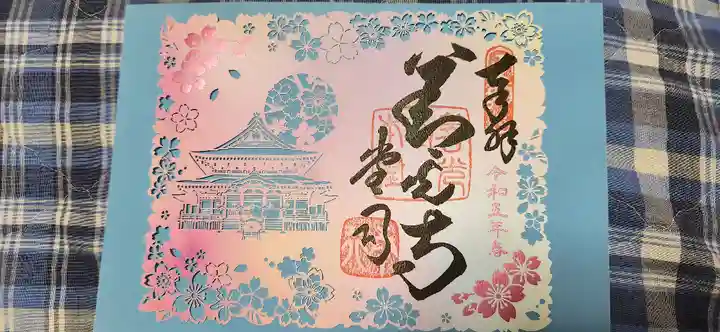 奉拝
令和五年春
善光寺
堂司